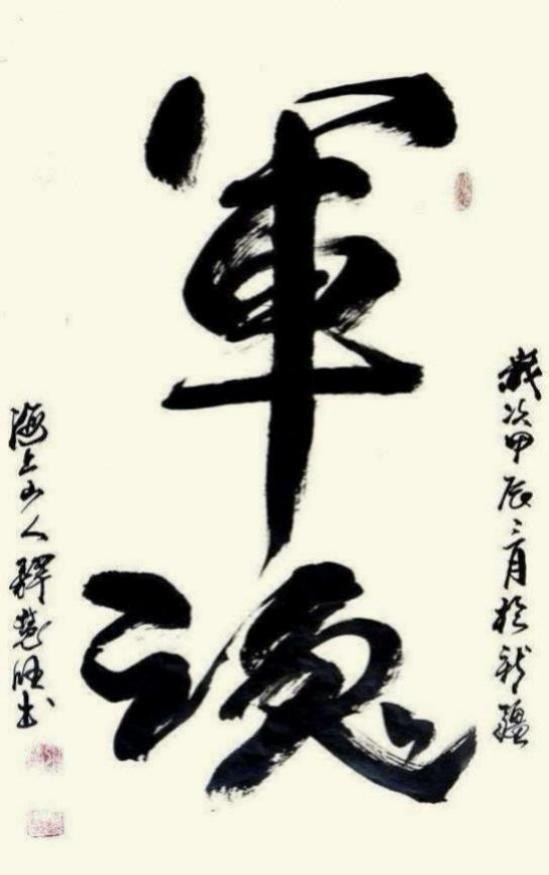 軍魂
歲次甲辰二月於新疆
海上山人釋慧旺書